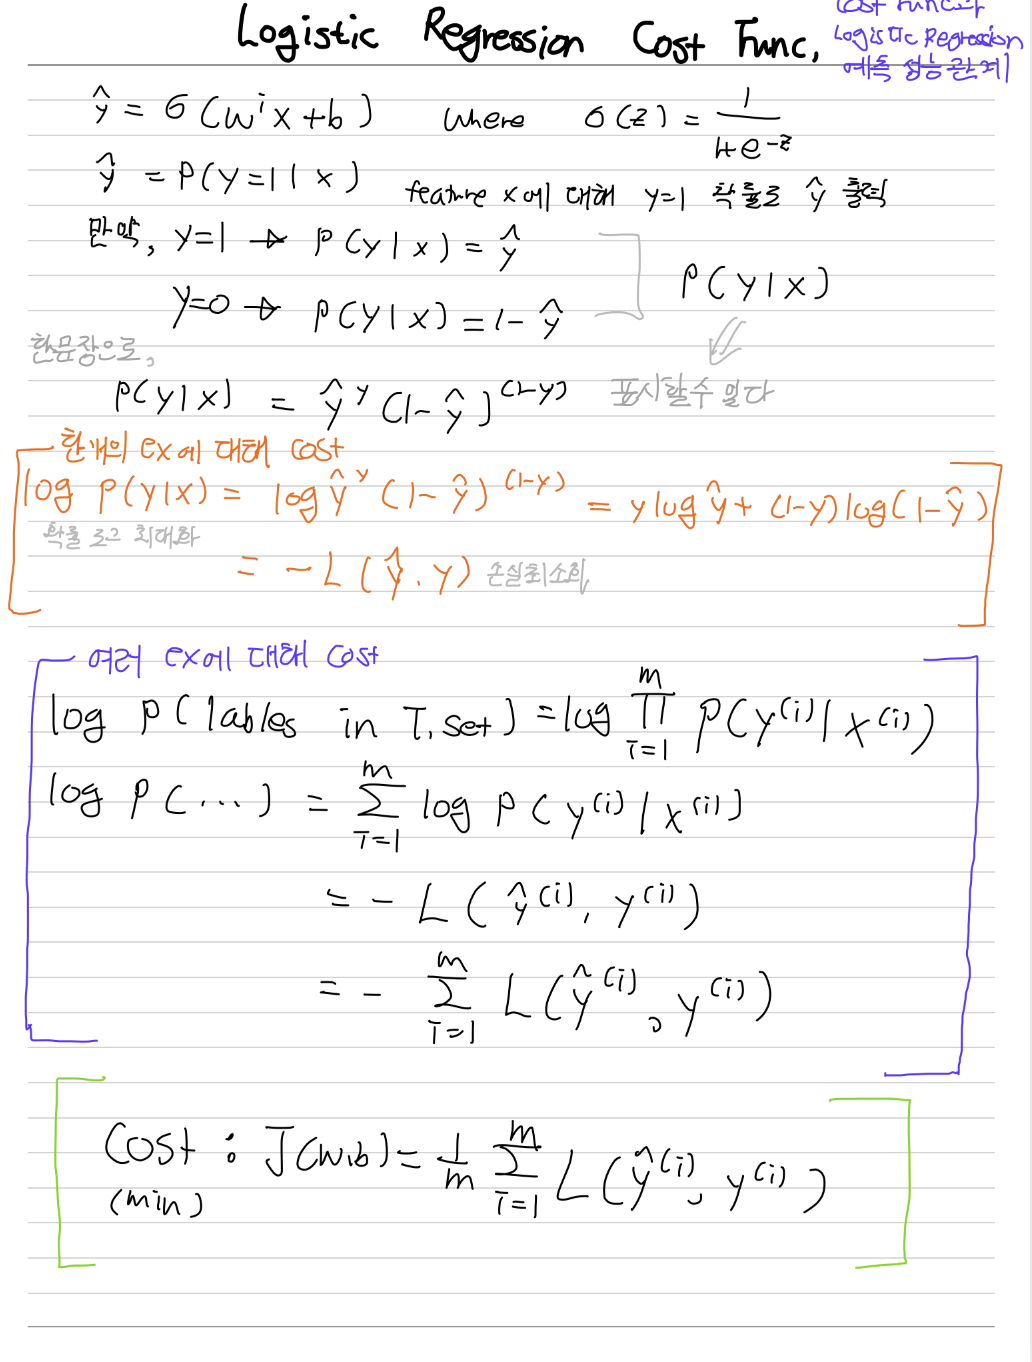 Logistic Regression Cost Func,
Cost Func과
Logistic Regression
예측 성능 관계
ŷ = σ(wᵀx+b) where σ(z) = 1/(1+e^-z)
ŷ = P(y=1|x) feature x에 대해 y=1 확률로 ŷ 출력
만약, y=1 → P(y|x) = ŷ
y=0 → P(y|x) = 1-ŷ
P(y|x)
한문장으로,
P(y|x) = ŷ^y (1-ŷ)^(1-y) 표시할수 있다
한개의 ex에 대해 cost
log P(y|x) = log ŷ^y (1-ŷ)^(1-y) = y log ŷ + (1-y) log(1-ŷ)
확률 로그 최대화
= -L(ŷ, y) 손실최소화
여러 ex에 대해 cost
log P(lables in T, set) = log ∏_{i=1}^{m} P(y^(i)|x^(i))
log P(...) = ∑_{i=1}^{m} log P(y^(i)|x^(i))
= - L(ŷ^(i), y^(i))
= - ∑_{i=1}^{m} L(ŷ^(i), y^(i))
Cost : J(w,b) = 1/m ∑_{i=1}^{m} L(ŷ^(i), y^(i))
(min)